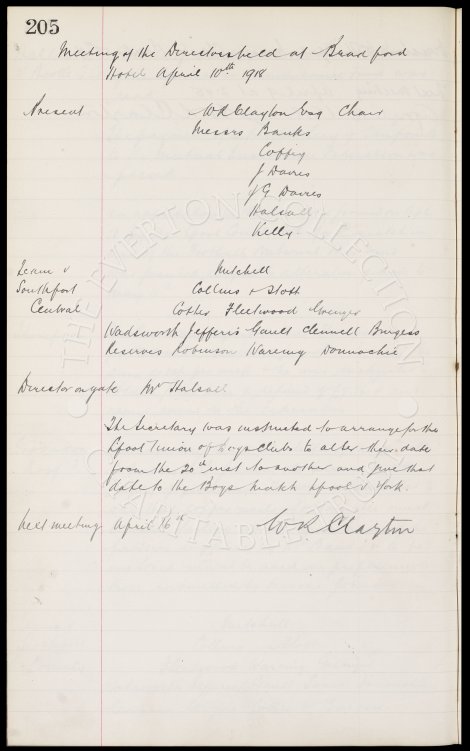 205
Meeting of the Directors held at Bradford
Hotel April 10th 1918
Present W R Clayton Esq Chair
Messrs Banks
Coffey
J Davies
J G Davies
Halsall
Kelly
Team v Mitchell
Southport Collins & Stott
Central Cotter Fleetwood Grenyer
Wadsworth Jefferis Gault Clennell Burgess
Reserves Robinson Wareing Donnachie
Director on gate Mr Halsall
The Secretary was instructed to arrange for the
Lpool Union of Boys Clubs to alter their date
from the 20th inst to another and give that
date to the Boys match Lpool v York.
Next meeting April 16th W R Clayton
THE EVERTON COLLECTION
CHARITABLE TRUST